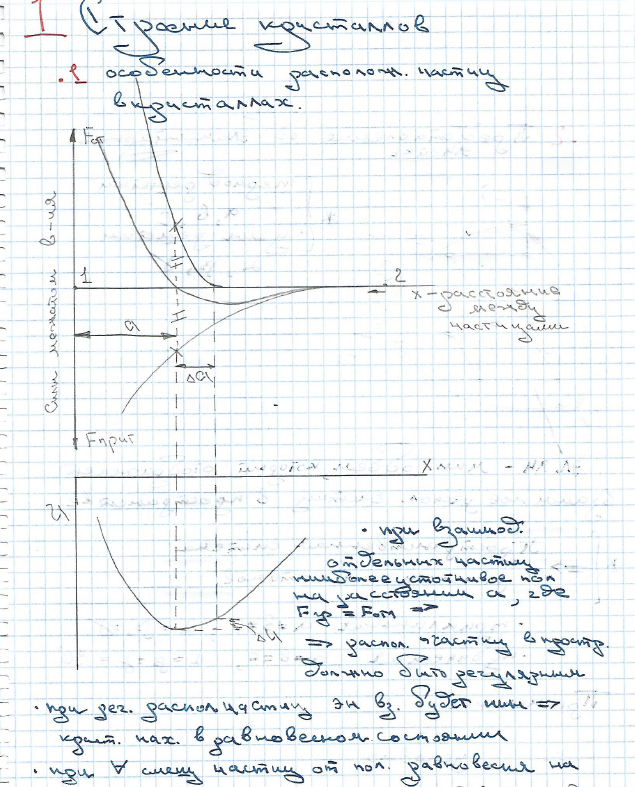 I Строение кристаллов
.1 особенности располож. частиц
в кристаллах.
Fот
Силы межатом в-ия
1
2
x - расстояние
между
частицами
a
Δa
Fприт
x
U
ΔU
• при взаимод.
отдельных частиц
наиболее устойчивое пол
на расстоянии a, где
Fпр = Fот ⇒
⇒ распол. частиц в простр.
должно быть регулярным
• при рег. распол частиц эн вз. будет мин ⇒
крист. нах. в равновесном состоянии
• при ∀ смещ частиц от пол. равновесия на